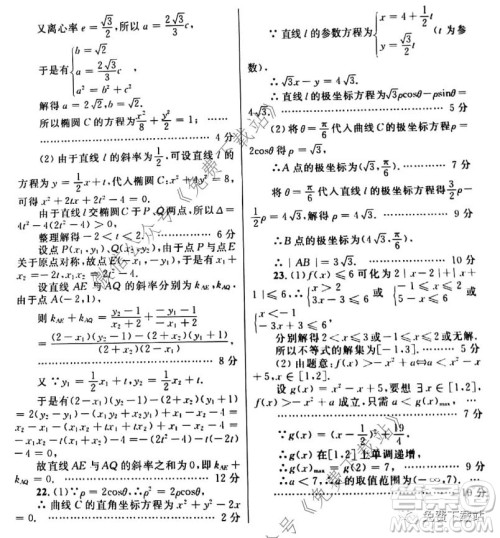 又离心率 e = √3/2，所以 a = 2√3/3 c，
于是有{ b = √2, a = 2√3/3 c, a² = b² + c²,
解得 a = 2√2，b = √2.
所以椭圆 C 的方程为 x²/8 + y²/2 = 1；
4 分
(2) 由于直线 l 的斜率为 1/2，可设直线 l 的
方程为 y = 1/2 x + t，代入椭圆 C：x² + 4y² = 8，
可得 x² + 2tx + 2t² - 4 = 0.
由于直线 l 交椭圆 C 于 P、Q 两点，所以 Δ =
4t² - 4(2t² - 4) > 0，
整理解得 -2 < t < 2.
设点 P(x₁，y₁)、Q(x₂，y₂)，由于点 P 与点 E
关于原点对称，故点 E(-x₁，-y₁)，于是有
设直线 AE 与 AQ 的斜率分别为 k_AE，k_AQ，
由于点 A(-2,1)，
则 k_AE + k_AQ = (y₂-1)/(x₂+2) + (-y₁-1)/(-x₁+2)
= ((2-x₁)(y₂-1) - (2+x₂)(y₁+1))/((2+x₂)(2-x₁)).
8 分
又∵y₁ = 1/2 x₁ + t，y₂ = 1/2 x₂ + t，
于是有(2-x₁)(y₂-1)-(2+x₂)(y₁+1)
= 2(y₂-y₁)-(x₁y₂+x₂y₁)+x₁-x₂-4
= x₂-x₁-(x₁x₂+tx₁+tx₂)+x₁-x₂-4
= -x₁x₂-t(x₁+x₂)-4
= -(2t²-4)-t(-2t)-4=0.
故直线 AE 与 AQ 的斜率之和为 0，即 k_AE +
k_AQ = 0.
12 分
22.(1)∵ρ = 2cosθ，∴ρ² = 2ρcosθ，
∴曲线 C 的直角坐标方程为 x² + y² - 2x
= 0.
2 分
∵直线 l 的参数方程为{ x = 4 + 1/2 t, y = √3/2 t (t 为参
数)，
∴√3x - y = 4√3.
∴直线 l 的极坐标方程为 √3ρcosθ - ρsinθ =
4√3.
5 分
(2)将 θ = π/6 代入曲线 C 的极坐标方程 ρ =
2cosθ 得 ρ = √3，
∴A 点的极坐标为(√3，π/6).
7 分
将 θ = π/6 代入直线 l 的极坐标方程得 3/2 ρ -
1/2 ρ = 4√3，解得 ρ = 4√3.
9 分
∴B 点的极坐标为(4√3，π/6).
∴|AB| = 3√3.
10 分
23.(1) f(x) ≤ 6 可化为 2|x-2|+|x+
1|≤6，
x+3≤6,
-3x+3≤6.
分别解得 2<x≤3 或 -1≤x≤2 或无解.
所以不等式的解集为[-1，3].
5 分
(2)由题意：f(x) > -x² + a ⇔ a < x² - x
+ 5，x∈[1，2].
设 g(x) = x² - x + 5，要想 ∃x∈[1，2]，
f(x) > -x² + a 成立，只需 a < g(x)max，
7 分
∵g(x) = (x - 1/2)² + 19/4，
∴g(x) 在 x∈[1，2] 上单调递增，
∴g(x)max = g(2) = 7，
9 分
∴a < 7，∴a 的取值范围为(-∞，7).
10 分
《免费下载站》
免费下载站